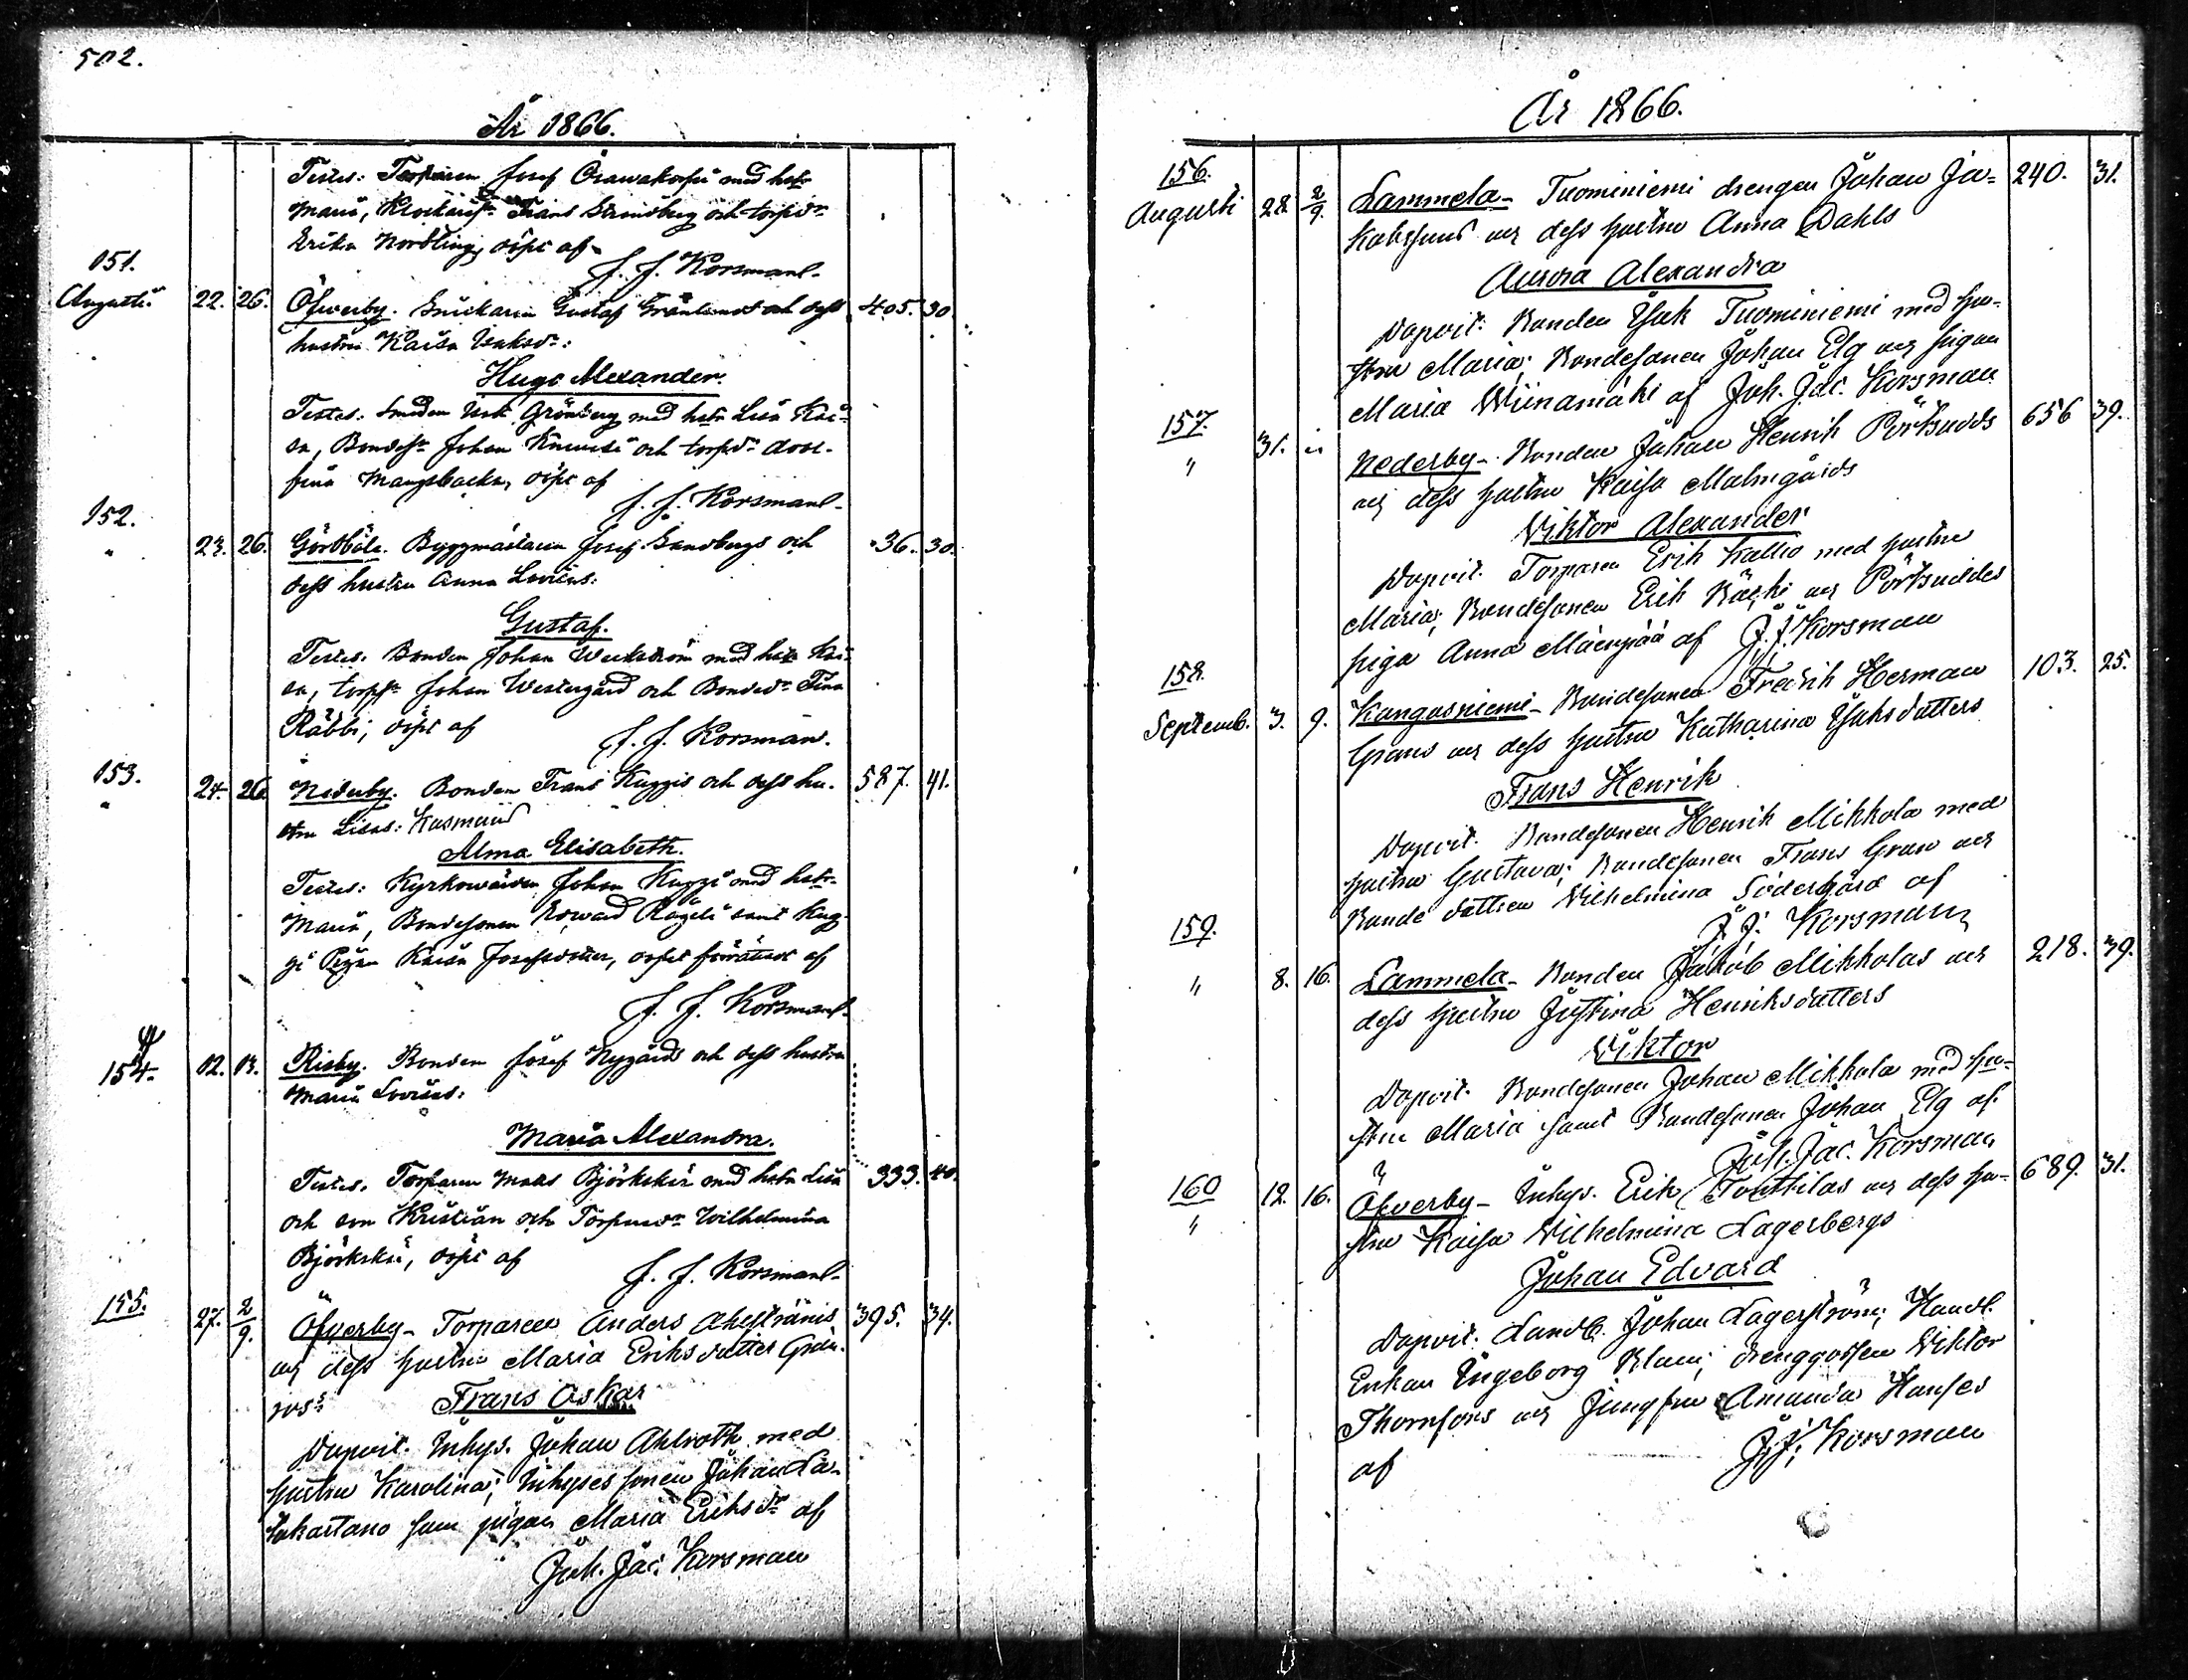 502.
År 1866.
Testes: Torparen Josef Orawakoski med hstr
Maria, Klockaresn Frans Strandberg och torpdr
Erika Nordling, döpt af
J. J. Korsman
151.
Augusti 22. 26. Öfwerby. Snickaren Gustaf Grönlunds och dess 405. 30
hustru Kaisa Isaksdr:
Hugo Alexander.
Testes: Smeden Isak Grönberg med hstr Lisa Kai-
sa, Bondesn Johan och torpdr Jose-
fina Mangsbacka, döpt af
J. J. Korsman
152.
" 23. 26. Gördböle. Byggmästaren Josef Sandbergs och 36. 30.
dess hustru Anna Lovisas:
Gustaf.
Testes: Bonden Johan Weckström med hstr Kai-
sa, torpsn Johan Westergård och Bondedr Fina
Räbbi, döpt af
J. J. Korsman.
153.
" 24. 26. Nederby. Bonden Frans Kuggis och dess hu- 587. 41.
stru Lisas: Kasmans
Alma Elisabeth.
Testes: Kyrkowärden Johan Kuggi med hstr
Maria, Bondesonen Edward Rågels samt Kug-
gi Pigan Kaisa Josefsdotter, döpt förrättad af
J. J. Korsman
154. 12. 13. Risby. Bonden Josef Nygårds och dess hustru
Maria Lovisas:
Maria Alexandra.
Testes. Torparen Mats Björkskär med hstr Lisa 333. 40.
och son Kristian och Torparedr Wilhelmina
Björkskär, döpt af
J. J. Korsman
155. 27. 2/9. Öfverby- Torparen Anders Ahlströms 395. 34.
och dess hustru Maria Eriksdotter Grön-
roos
Frans Oskar
Dopvit. Inhys. Johan Ahlroth med
hustru Karolina; Inhyses sonen Johan La-
kartano samt pigan Maria Eriksdr af
Joh. Jac. Korsman
År 1866.
156.
Augusti 28 2/9. Lammela- Tuominiemi drengen Johan Ja- 240. 31.
kobssons och dess hustru Anna Dahls
Aurora Alexandra
Dopvit: Bonden Isak Tuominiemi med hu-
stru Maria; Bondesonen Johan Elg och pigan
Maria Wiinamäki af Joh. Jac. Korsman
157.
" 31. " Nederby- Bonden Johan Henrik Pörtsudds 656 39.
och dess hustru Kaisa Malmgårds
Viktor Alexander
Dopvit. Torparen Erik Kallio med hustru
Maria; Bondesonen Erik Bäcki och Pörtsuddes
piga Anna Mäenpää af J. J. Korsman
158.
Septemb. 3. 9. Kangasniemi- Bondesonen Fredrik Herman 103. 25.
Grans och dess hustru Katharina Isaksdotters
Frans Henrik
Dopvit. Bondesonen Henrik Mikkola med
hustru Gustava; Bondesonen Frans Gran och
Bonde dottren Wilhelmina Södergård af
J. J. Korsman
159.
" 8. 16. Lammela- Bonden Jakob Mikkolas och 218. 39.
dess hustru Justina Henriksdotters
Viktor
Dopvit. Bondesonen Johan Mikkola med hu-
stru Maria samt Bondesonen Johan Elg af
Joh. Jac. Korsman
160
" 12. 16. Öfverby- Inhys. Erik Tonttilas och dess hu- 689. 31.
stru Kaisa Wilhelmina Lagerbergs
Johan Edvard
Dopvit. Landb. Johan Lagerström; Handl.
Enkan Ingeborg Blom; drenggossen Viktor
Thornfors och Jungfru Amanda Hanses
af J. J. Korsman